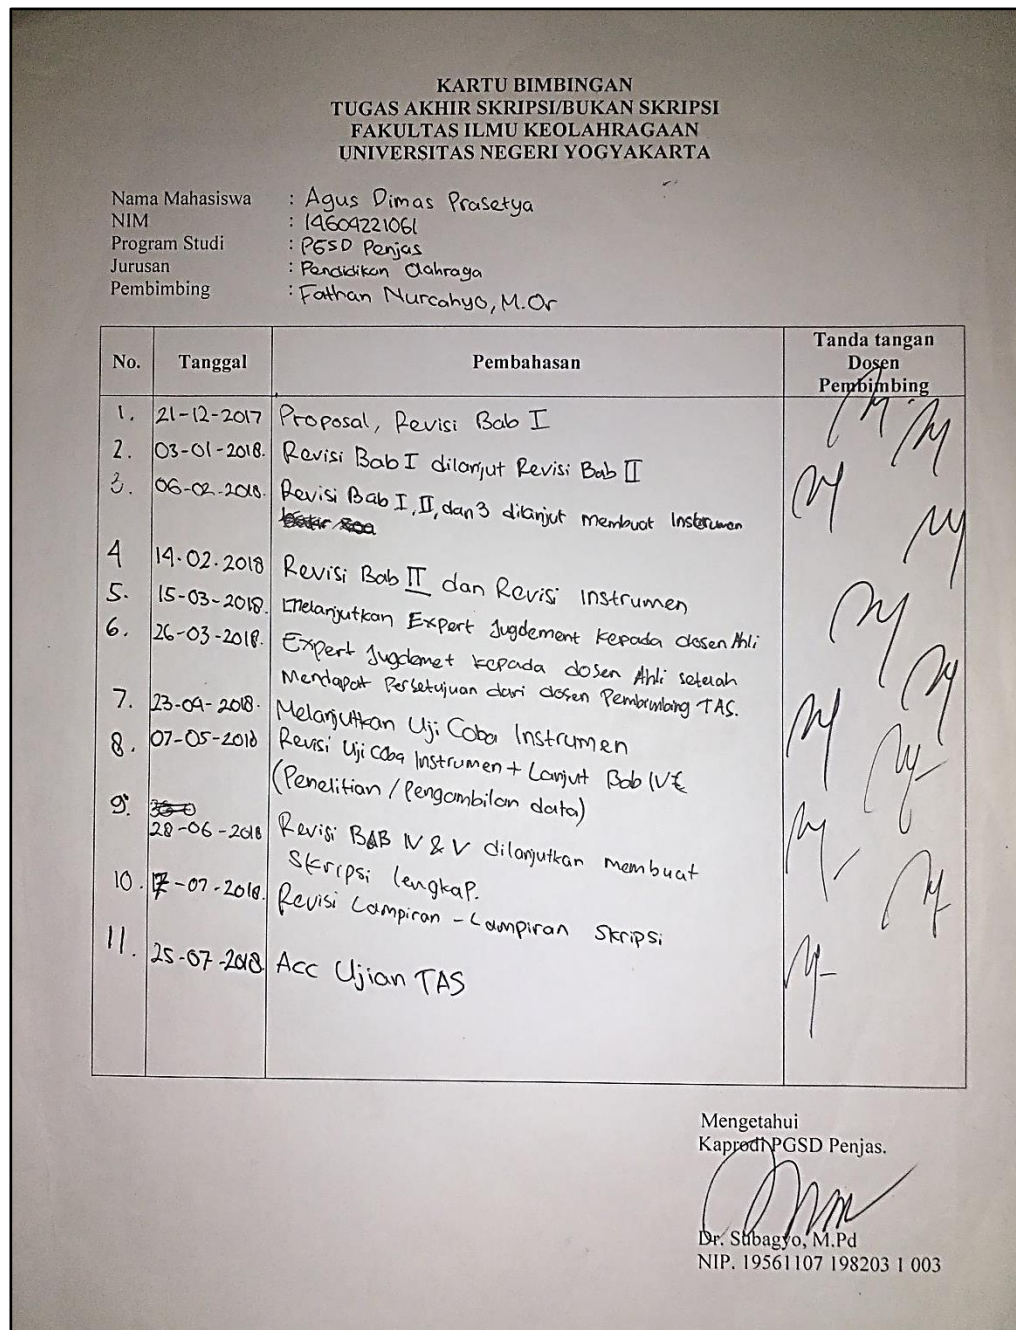 KARTU BIMBINGAN
TUGAS AKHIR SKRIPSI/BUKAN SKRIPSI
FAKULTAS ILMU KEOLAHRAGAAN
UNIVERSITAS NEGERI YOGYAKARTA
Nama Mahasiswa : Agus Dimas Prasetya
NIM : 14604221061
Program Studi : PGSD Penjas
Jurusan : Pendidikan Olahraga
Pembimbing : Fathan Nurcahyo, M.Or
No. Tanggal Pembahasan Tanda tangan
Dosen
Pembimbing
1. 21-12-2017 Proposal, Revisi Bab I
2. 03-01-2018. Revisi Bab I dilanjut Revisi Bab II
3. 06-02-2018. Revisi Bab I, II, dan 3 dilanjut membuat Instrumen
4 14.02.2018 Revisi Bab II dan Revisi Instrumen
5. 15-03-2018. Melanjutkan Expert Jugdement kepada dosen Ahli
6. 26-03-2018. Expert Jugdemet kepada dosen Ahli setelah
Mendapat Persetujuan dari dosen Pembimbing TAS.
7. 23-04-2018. Melanjutkan Uji Coba Instrumen
8. 07-05-2018 Revisi Uji Coba Instrumen + Lanjut Bab IV
(Penelitian / Pengambilan data)
9. 28-06-2018 Revisi BAB IV & V dilanjutkan membuat
Skripsi lengkap.
10. 17-07-2018. Revisi Lampiran - Lampiran Skripsi
11. 25-07-2018 Acc Ujian TAS
Mengetahui
Kaprodi PGSD Penjas.
Dr. Subagyo, M.Pd
NIP. 19561107 198203 1 003